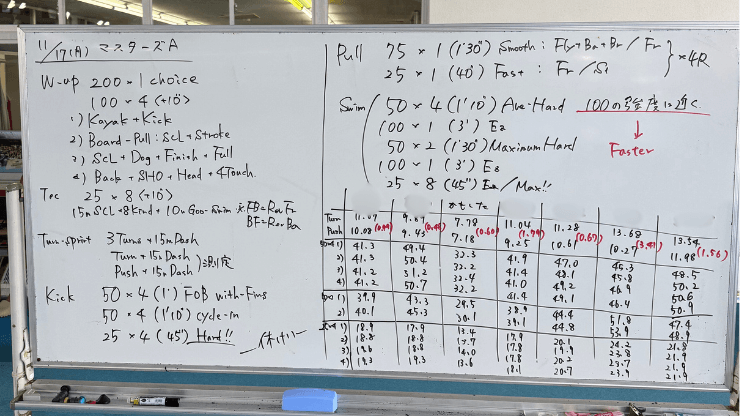 11/17(月) マスターズA
W-up 200×1 choice
100×4 (+10")
1) Kayak+Kick
2) Board-Pull:SCL+Stroke
3) SCL+Dog+Finish+Full
4) Back+SHO+Head+4Touch.
Tec 25×8 (+10")
15m SCL+8Knd+10m Goo-Swim ※FB=RevFr
BF=RevBa
Turn-sprint 3Turns+15mDash
Turn+15mDash
Push+15mDash 測定
Kick 50×4 (1') FOB with-Fins
50×4 (1'10") cycle-in
25×4 (45") Hard!!
Pull 75×1 (1'30") Smooth:Fly+Ba+Br/Fr
25×1 (40") Fast:Fr/S1
×4R
Swim 50×4 (1'10") Ave-Hard 100の強度に近く
100×1 (3') Ea
Faster
50×2 (1'30") Maximum Hard
100×1 (3') Ea
25×8 (45") Ea/Max!!
Turn 11.07 9.87 7.78 11.04 11.28 13.68 13.54
Push 10.08 (0.99) 9.43 (0.44) 7.18 (0.60) 9.25 (1.79) 10.61 (0.67) 10.27 (3.41) 11.98 (1.56)
1) 41.3 49.4 32.3 41.9 47.0 45.3 48.5
2) 41.3 50.4 32.2 41.4 48.1 45.8 50.2
3) 41.2 51.2 32.4 41.0 49.2 46.9 50.6
4) 41.2 50.7 32.2 41.4 49.1 46.4 50.9
1) 39.9 43.3 29.5 38.9 44.4 51.8 47.4
2) 40.1 45.3 30.1 39.1 44.8 53.9 48.9
1) 18.9 17.9 13.4 17.9 20.1 24.2 21.8
2) 18.8 18.8 13.7 17.8 19.9 23.8 21.9
3) 19.6 18.8 14.0 17.8 20.2 23.7 21.9
4) 19.3 19.3 13.6 18.1 20.7 23.9 21.9